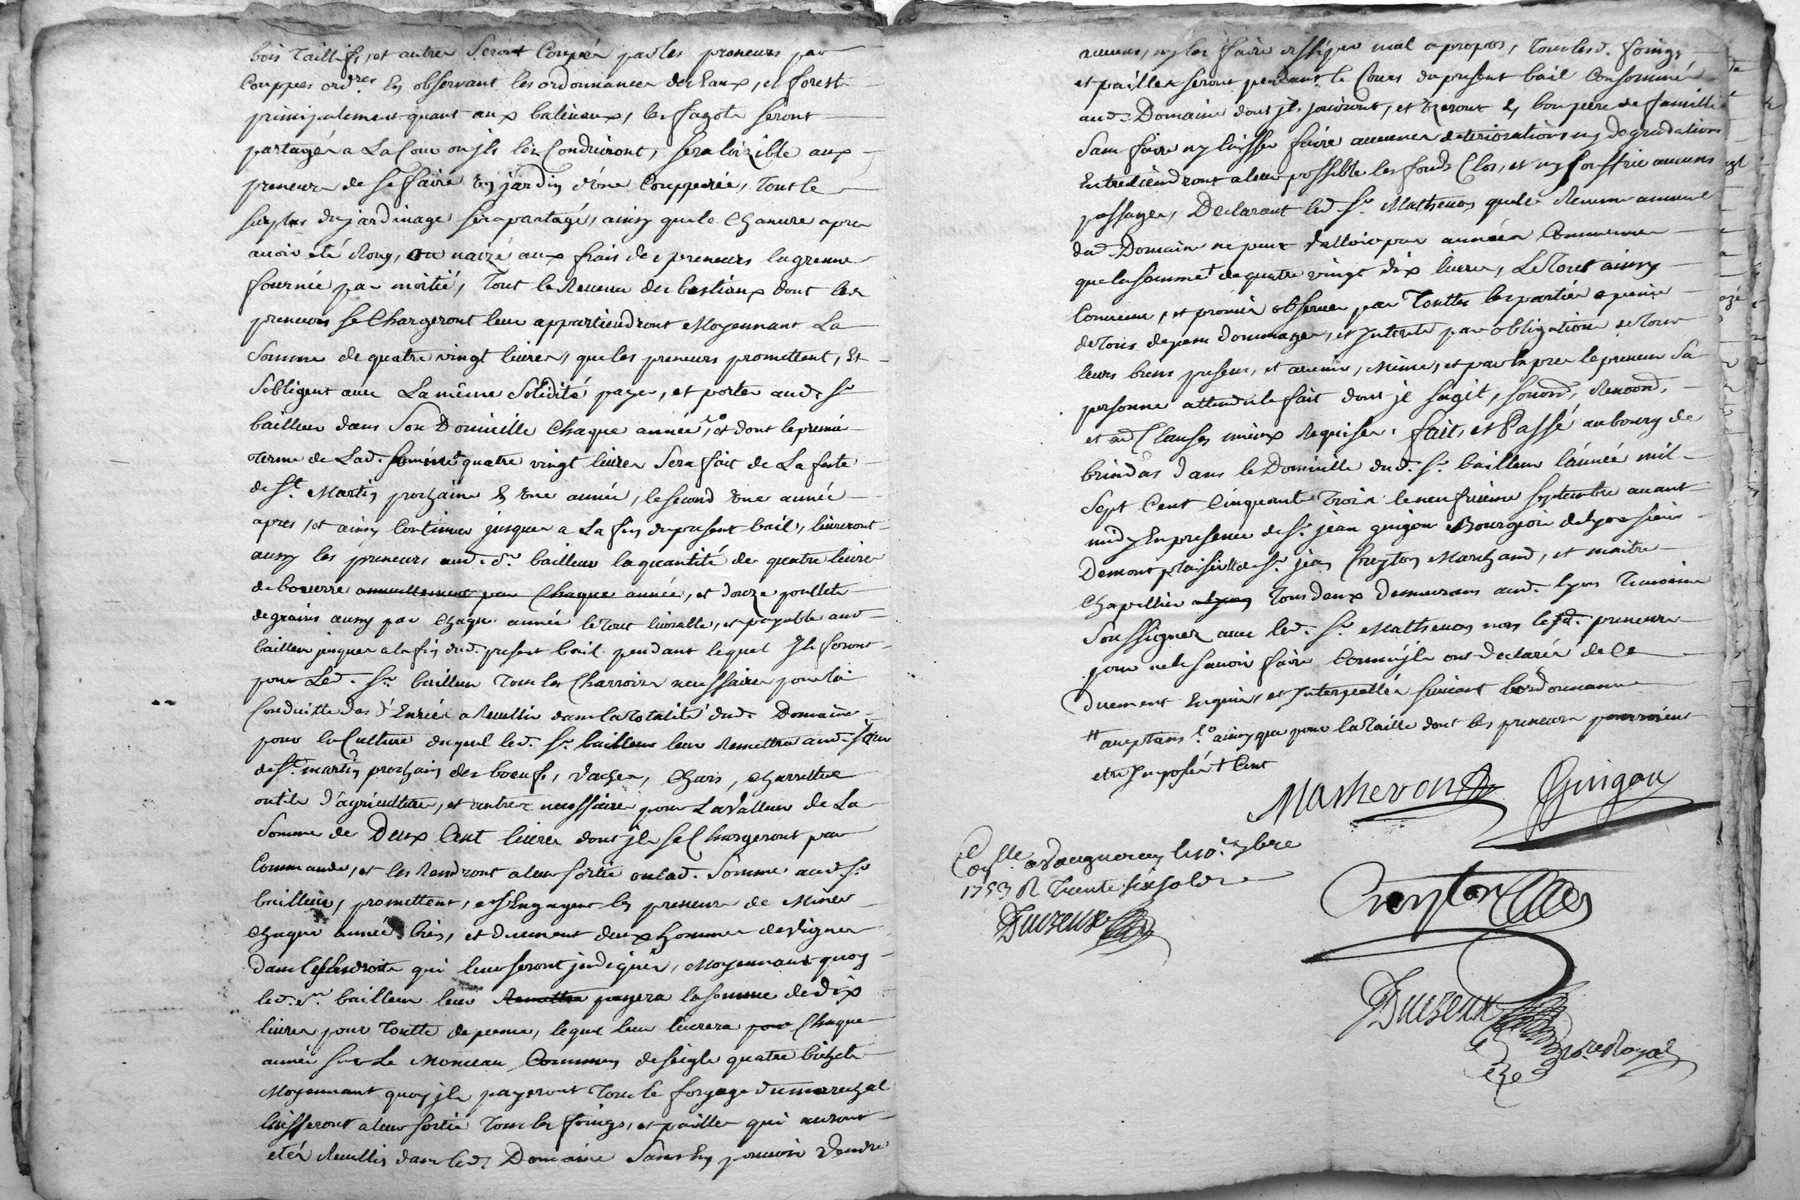 bois taillifs, et autres seront coupés par les preneurs par
Couppes ord.res En observant les ordonnances des Eaux, et forest
principalement quant aux baliveaux, les fagots seront
partagés a La Cour ou jls les Conduiront, sera loizible aux
preneurs de se faire un jardin d'une Coupperée, tout le
surplus du jardinage sera partagé, ainsy que le Chanvre apres
avoir été Rouy, ou naizé aux frais des preneurs la grenne
fournie par moitié, tout le Revenu des bestiaux dont les
preneurs se Chargeront leur appartiendront Moyennant La
Somme de quatre vingt livres, que les preneurs promettent, Et
s'obligent avec La même Solidité payer, et porter aud. Sr
bailleur dans Son Domicille Chaque année, et dont le premier
terme de Lad. somme quatre vingt livres Sera fait de La feste
de St Martin prochaine En une année, le second une année
apres, et ainsy Continuer jusques a La fin du present bail, livreront
aussy les preneurs aud. Sr bailleur la quantité de quatre livres
de beurre annuellement par Chaque année, et douze poullets
de grains aussy par chaque année le tout livrable, et payable aud
bailleur jusques a la fin dud. present bail pendant lequel Jls feront
pour Led. Sr bailleur tous les Charrois necessaires pour la
Conduitte des d'Enrées a Reuillir dans la totalité dud. Domaine
pour la Culture duquel led. Sr bailleur leur Remettra aud. jour
de St martin prochain des boeufs, vaches, Chars, charrettes
outils d'agriculture, et autres necessaires pour La valleur de La
Somme de Deux Cent livres dont jls se Chargeront par
Commande, et les Rendront a leur sortie ou lad. Somme aud. Sr
bailleur, promettent, et s'Engagent les preneurs de Miner
chaque année bien, et duement deux hommes de vigne
dans les Endroits qui leur seront jndiqués, Moyennant quoy
led. Sr bailleur leur Remettra payera la somme de dix
livres pour toutte depence, lequel leur livrera pour Chaque
année sur Le Monceau Commun de seigle quatre bichets
Moyennant quoy jls payeront tout le forgage du marechal
laisseront a leur sortie tous les foings, et pailles qui auront
etés Reuillis dans led. Domaine Sans En pouvoir Vendre
aucuns, ny les faire dissiper mal a propos, tous lesd. foings
et pailles seront pendant le Cours du present bail Consommés
aud. Domaine dont jls jouiront, et Useront En bon pere de famille
Sans faire ny laisser faire aucunes deteriorations ny degradations
Entretiendront a leur possible les fonds Clos, et n'y souffrir aucuns
passages, Declarant led. Sr Mathevon que le Revenu annuel
dud. Domaine ne peut valloir par années Communes
que la somme de quatre vingt dix livres, Le tout ainsy
Convenu, et promis observer par Touttes les parties a peine
de tous depens dommages, et Jnterets par obligation de tous
leurs biens presens, et avenir, Même, et par Expres le preneur Sa
personne attendu le fait dont jl s'agit, soumd, Renoncd,
et aud. Clauses mieux Requises. fait, et Passé au bourg de
brindas dans le Domicille dud. Sr bailleur l'année mil
Sept Cent Cinquante trois le neufvieme septembre avant
midy En presence de Sr jean guigou Bourgeois de lyon sieur
Demont plaisir et de Sr jean Creyton Marchand, et maitre
Chapellier a lyon tous deux demeurans aud. Lyon temoins
Soussignez avec led. Sr Mathevon non les d. preneurs
pour ne le savoir faire Comm'jls ont declarés de Ce
Duement Enquis, et Jnterpellés suivant l'ordonnance
ainsy que pour la taille dont les preneurs pourroient
etre Jmposés
Mathevon
Guigou
Conlle a Vaugneray le 10.e 7bre
1753 R trente six sols
Duizeux
Creyton
Duizeux
no.re Royal